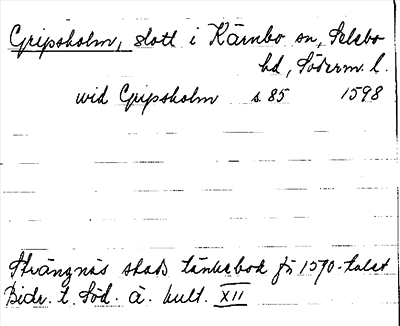 Gripsholm, slott i Kärnbo sn, Selebo
hd, Söderm. l.
wid Gripsholm s. 85 1598
Strängnäs stads tänkebok fr 1590-talet
Bidr. t. Söd. ä. kult. XII